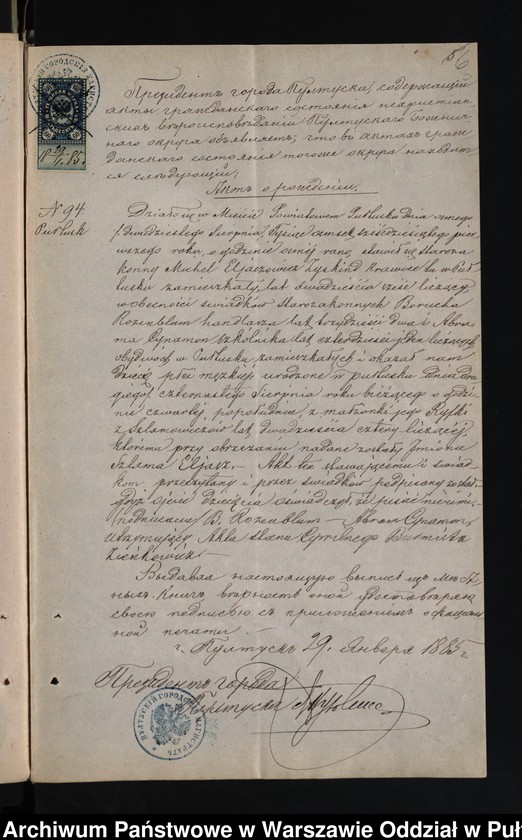 Президентъ города Пултуска, содержащій
акты гражданскаго состоянія нехристіан-
скихъ вѣроисповѣданій Пултускаго
округа объявляетъ, что въ актахъ граж-
данскаго состоянія того же округа находит-
ся слѣдующій:
Актъ о рожденіи.
N 94.
Pułtusk
Działo się w Mieście Powiatowem Pułtusku dnia ósmego
/dwudziestego Sierpnia, tysiąc ośmset sześćdziesiątego pier-
wszego roku, o godzinie ósmej rano, stawił się Staroza-
konny Michel Eljaszowicz Zyskind krawiec tu w Puł-
tusku zamieszkały, lat dwadzieścia sześć liczący
w obecności świadków Starozakonnych Borucha
Rozenblum handlarza lat trzydzieści dwa i Abra-
ma Cynamon szkolnika lat czterdzieści jeden liczących
obydwóch w Pułtusku zamieszkałych i okazał nam
dziecię płci męzkiej urodzone w Pułtusku dnia dru-
giego/ czternastego Sierpnia roku bieżącego o godzi-
nie czwartej popołudniu, z małżonki jego Ryfki
z Szlamowiczów lat dwadzieścia cztery liczącej
któremu przy obrzezaniu nadane zostały Imiona
Szlama Eljasz. — Akt ten stawającemu i świad-
kom przeczytany i przez świadków podpisany został
gdyż ojciec dziecięcia oświadczył, że pisać nieumie
/podpisano/ B. Rozenblum — Abram Cynamon,
utrzymujący Akta Stanu Cywilnego Burmistrz
Zienkiewicz. —
Выдавая настоящую выпись изъ
книгъ вѣрность оной удостовѣряю
своею подписью съ приложеніемъ
ной печати. —
г. Пултускъ 29 Января 1885 г.
Президентъ города
Пултуска
Archiwum Państwowe w Warszawie Oddział w Puł